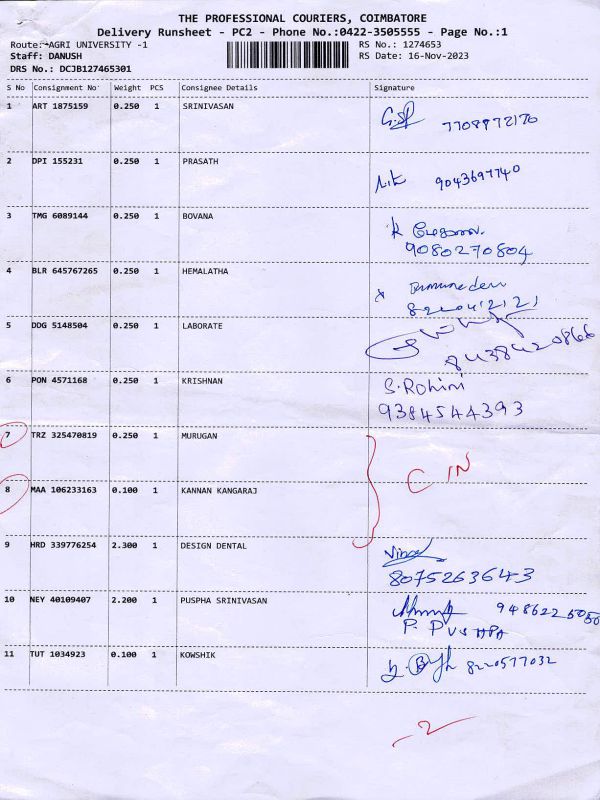 THE PROFESSIONAL COURIERS, COIMBATORE
Delivery Runsheet - PC2 - Phone No.:0422-3505555 - Page No.:1
Route: AGRI UNIVERSITY -1 RS No.: 1274653
Staff: DANUSH RS Date: 16-Nov-2023
DRS No.: DCJB127465301
S No Consignment No Weight PCS Consignee Details Signature
1 ART 1875159 0.250 1 SRINIVASAN
7708972170
2 DPI 155231 0.250 1 PRASATH
9043697740
3 TMG 6089144 0.250 1 BOVANA
9080270804
4 BLR 645767265 0.250 1 HEMALATHA
5 DDG 5148504 0.250 1 LABORATE
8438420866
6 PON 4571168 0.250 1 KRISHNAN S.Rohini
9384544393
7 TRZ 325470819 0.250 1 MURUGAN
C IN
8 MAA 106233163 0.100 1 KANNAN KANGARAJ
9 HRD 339776254 2.300 1 DESIGN DENTAL
8075263643
10 NEY 40109407 2.200 1 PUSPHA SRINIVASAN
P. PUSHPA
11 TUT 1034923 0.100 1 KOWSHIK
8220577032
-2